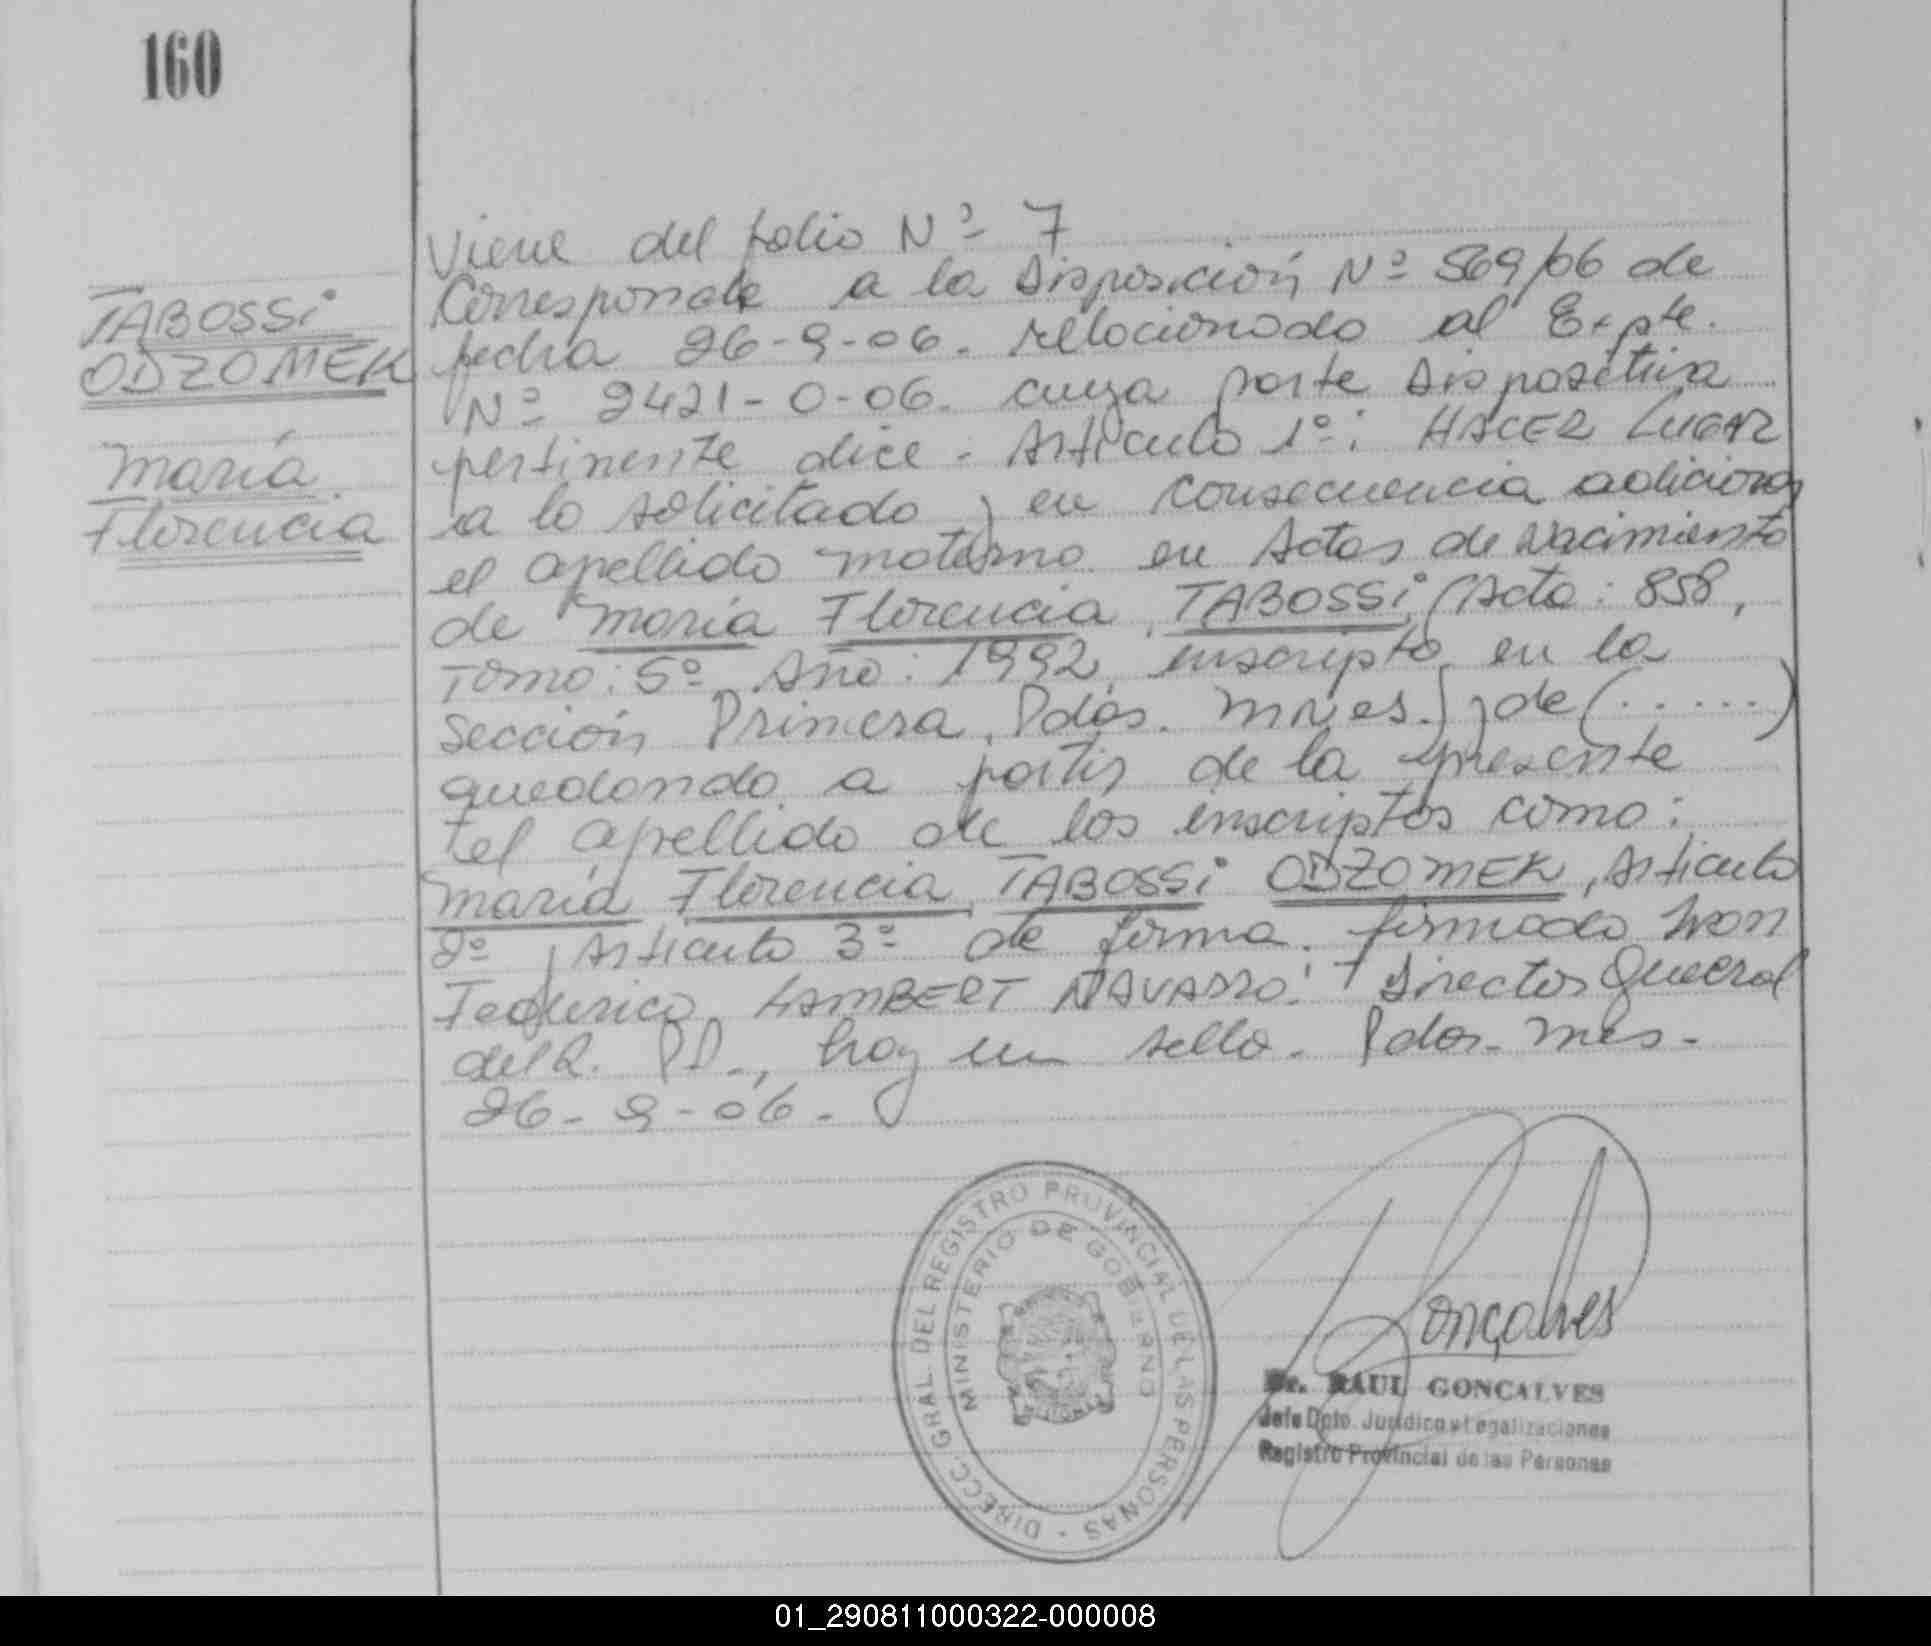 160
TABOSSi
ODZOMEK
María
Florencia
Viene del folio Nº 7
Corresponde a la Disposición Nº 569/06 de
fecha 26-9-06. relacionado al Expte.
Nº 2421-0-06. cuya parte Dispositiva
pertinente dice. Artículo 1º: HACER LUGAR
a lo solicitado y en consecuencia adicionar
el apellido materno en Actas de Nacimiento
de María Florencia TABOSSi (Acta: 858,
Tomo: 5º, Año: 1992, inscripta en la
Sección Primera, Pdas. Mnes.) y de (.....)
quedando a partir de la presente
el apellido de los inscriptos como:
María Florencia TABOSSi ODZOMEK, Artículo
2º y Artículo 3º de forma. firmado Ivan
Federico LAMBERT NAVARRO. Director General
del R. PP., hay un sello. Pdas. Mnes.
26-9-06.
DIRECC. GRAL. DEL REGISTRO PROVINCIAL DE LAS PERSONAS
MINISTERIO DE GOBIERNO
Gonçalves
Dr. RAUL GONCALVES
Jefe Dpto. Jurídico y Legalizaciones
Registro Provincial de las Personas
01_290811000322-000008